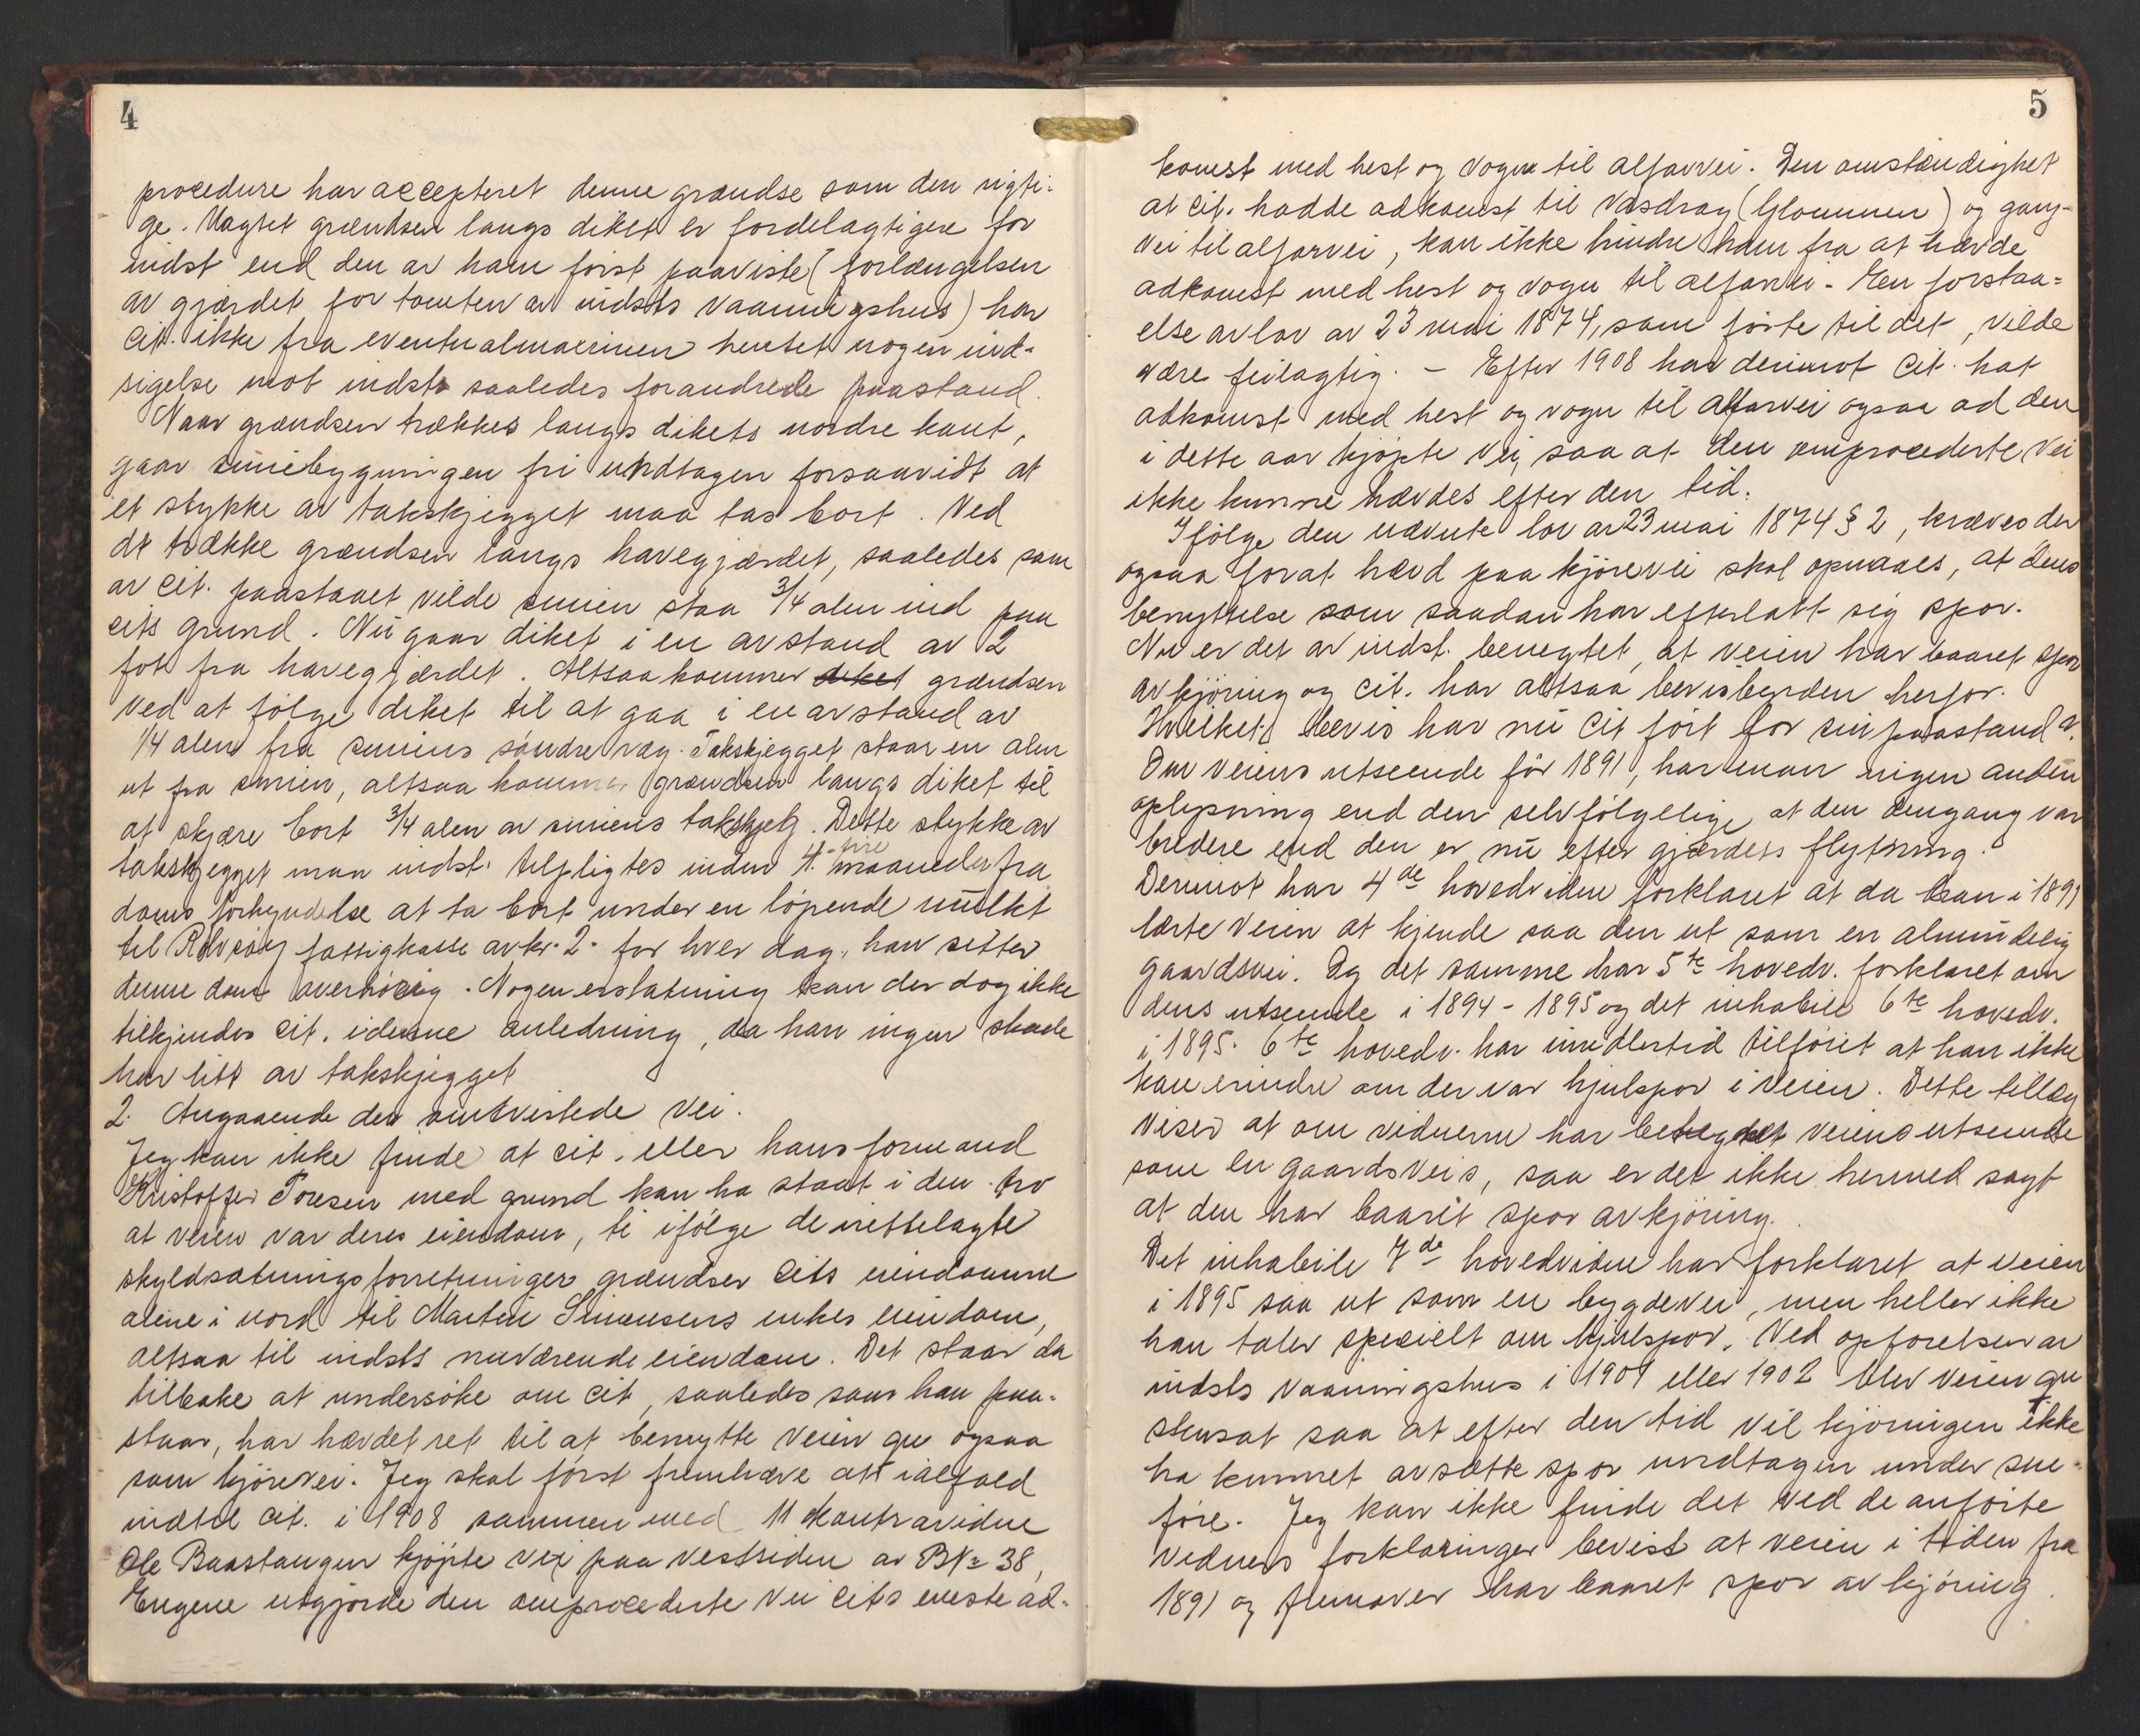 4
procedure har accepteret denne grændse som den rigti-
ge. Uagtet grændsen langs diket er fordelagtigere for
indst end den av ham først paaviste (forlængelsen
av gjærdet for tomten av indsts vaaningshus) har
cit. ikke fra eventualmaximen hentet nogen ind-
sigelse mot indsts saaledes forandrede paastand.
Naar grændsen trækkes langs dikets nordre kant,
gaar smiebygningen fri undtagen forsaavidt at
et stykke av takskjegget maa tas bort. Ved
at trække grændsen langs havegjærdet, saaledes som
av cit. paastaaet vilde smien staa 3/4 alen ind paa
cits grund. Nu gaar diket i en avstand av 2
fot fra havegjærdet. Altsaa kommer diket grændsen
ved at følge diket til at gaa i en avstand av
1/4 alen fra smiens søndre væg. Takskjegget staar en alen
ut fra smien, altsaa kommer grændsen langs diket til
at skjære bort 3/4 alen av smiens takskjeg. Dette stykke av
takskjegget maa indst. tilpligtes inden 4. -fire maaneder fra
doms forkyndelse at ta bort under en løpende mulkt
til Rolvsøy fattigkasse av kr. 2- for hver dag, han sitter
denne dom overhørig. Nogen erstatning kan der dog ikke
tilkjendes cit. i denne anledning, da han ingen skade
har litt av takskjegget
2. Angaaende den omtvistede vei.
Jeg kan ikke finde at cit. eller hans formand
Kristoffer Toresen med grund kan ha staat i den tro
at veien var deres eiendom, ti ifølge de nettelagte
skyldsætningsforretninger grændser cits eiendomme
alene i nord til Martin Simensens enkes eiendom,
altsaa til indsts nuværende eiendom. Det staar da
tilbake at undersøke om cit, saaledes som han paa-
staar, har hævdet ret til at benytte veien qu ogsaa
som kjørevei. Jeg skal først fremhæve at ialfald
indtil cit. i 1908 sammen med 11 kontravidne
Ole Baastangen kjøpte vei paa vestsiden av BN= 38,
Engene utgjorde den omprocederte vei cits eneste ad-
5
komst med hest og vogn til alfarvei. Den omstændighet
at cit. hadde adkomst til vasdrag (Glommen) og gang-
vei til alfarvei, kan ikke hindre ham fra at hævde
adkomst med hest og vogn til alfarvei - En forstaa-
else av lov av 23 mai 1874, som førte til det, vilde
være feilagtig. - Efter 1908 har derimot cit. hat
adkomst med hest og vogn til alfarvei ogsaa ad den
i dette aar kjøpte vei, saa at den omprocederte vei
ikke kunne hævdes efter den tid.
Ifølge den nævnte lov av 23 mai 1874 § 2, kræves der
ogsaa forat hævd paa kjørevei skal opnaaes, at dens
benyttelse som saadan har efterlatt sig spor.
Nu er det av indst. benegtet, at veien har baaret spor
av kjøring og cit. har altsaa bevisbyrden herfor.
Hvilket bevis har nu cit ført for sin paastand?
Om veiens utseende før 1891, har man ingen anden
oplysning end den selvfølgelige, at den dengang var
bredere end den er nu efter gjærdets flytning.
Derimot har 4de hovedvidne forklaret at da han i 1891
lærte veien at kjende saa den ut som en almindelig
gaardsvei. Og det samme har 5te hovedv. forklaret om
dens utseende i 1894-1895 og det inhabile 6te hovedv.
i 1895. 6te hovedv. har imidlertid tilføiet at han ikke
kan erindre om der var hjulspor i veien. Dette tillæg
viser at om vidnerne har betegnet veiens utseende
som en gaardsveis, saa er det ikke hermed sagt
at den har baaret spor av kjøring.
Det inhabile 7de hovedvidne har forklaret at veien
i 1895 saa ut som en bygdevei, men heller ikke
han taler specielt om hjulspor. Ved opførelsen av
indsts vaaningshus i 1901 eller 1902 blev veien qu
stensat saa at efter den tid vil kjøringen ikke
ha kunnet avsætte spor undtagen under sne-
føre. Jeg kan ikke finde det ved de anførte
vidners forklaringer bevist at veien i tiden fra
1891 og fremover har baaret spor av kjøring